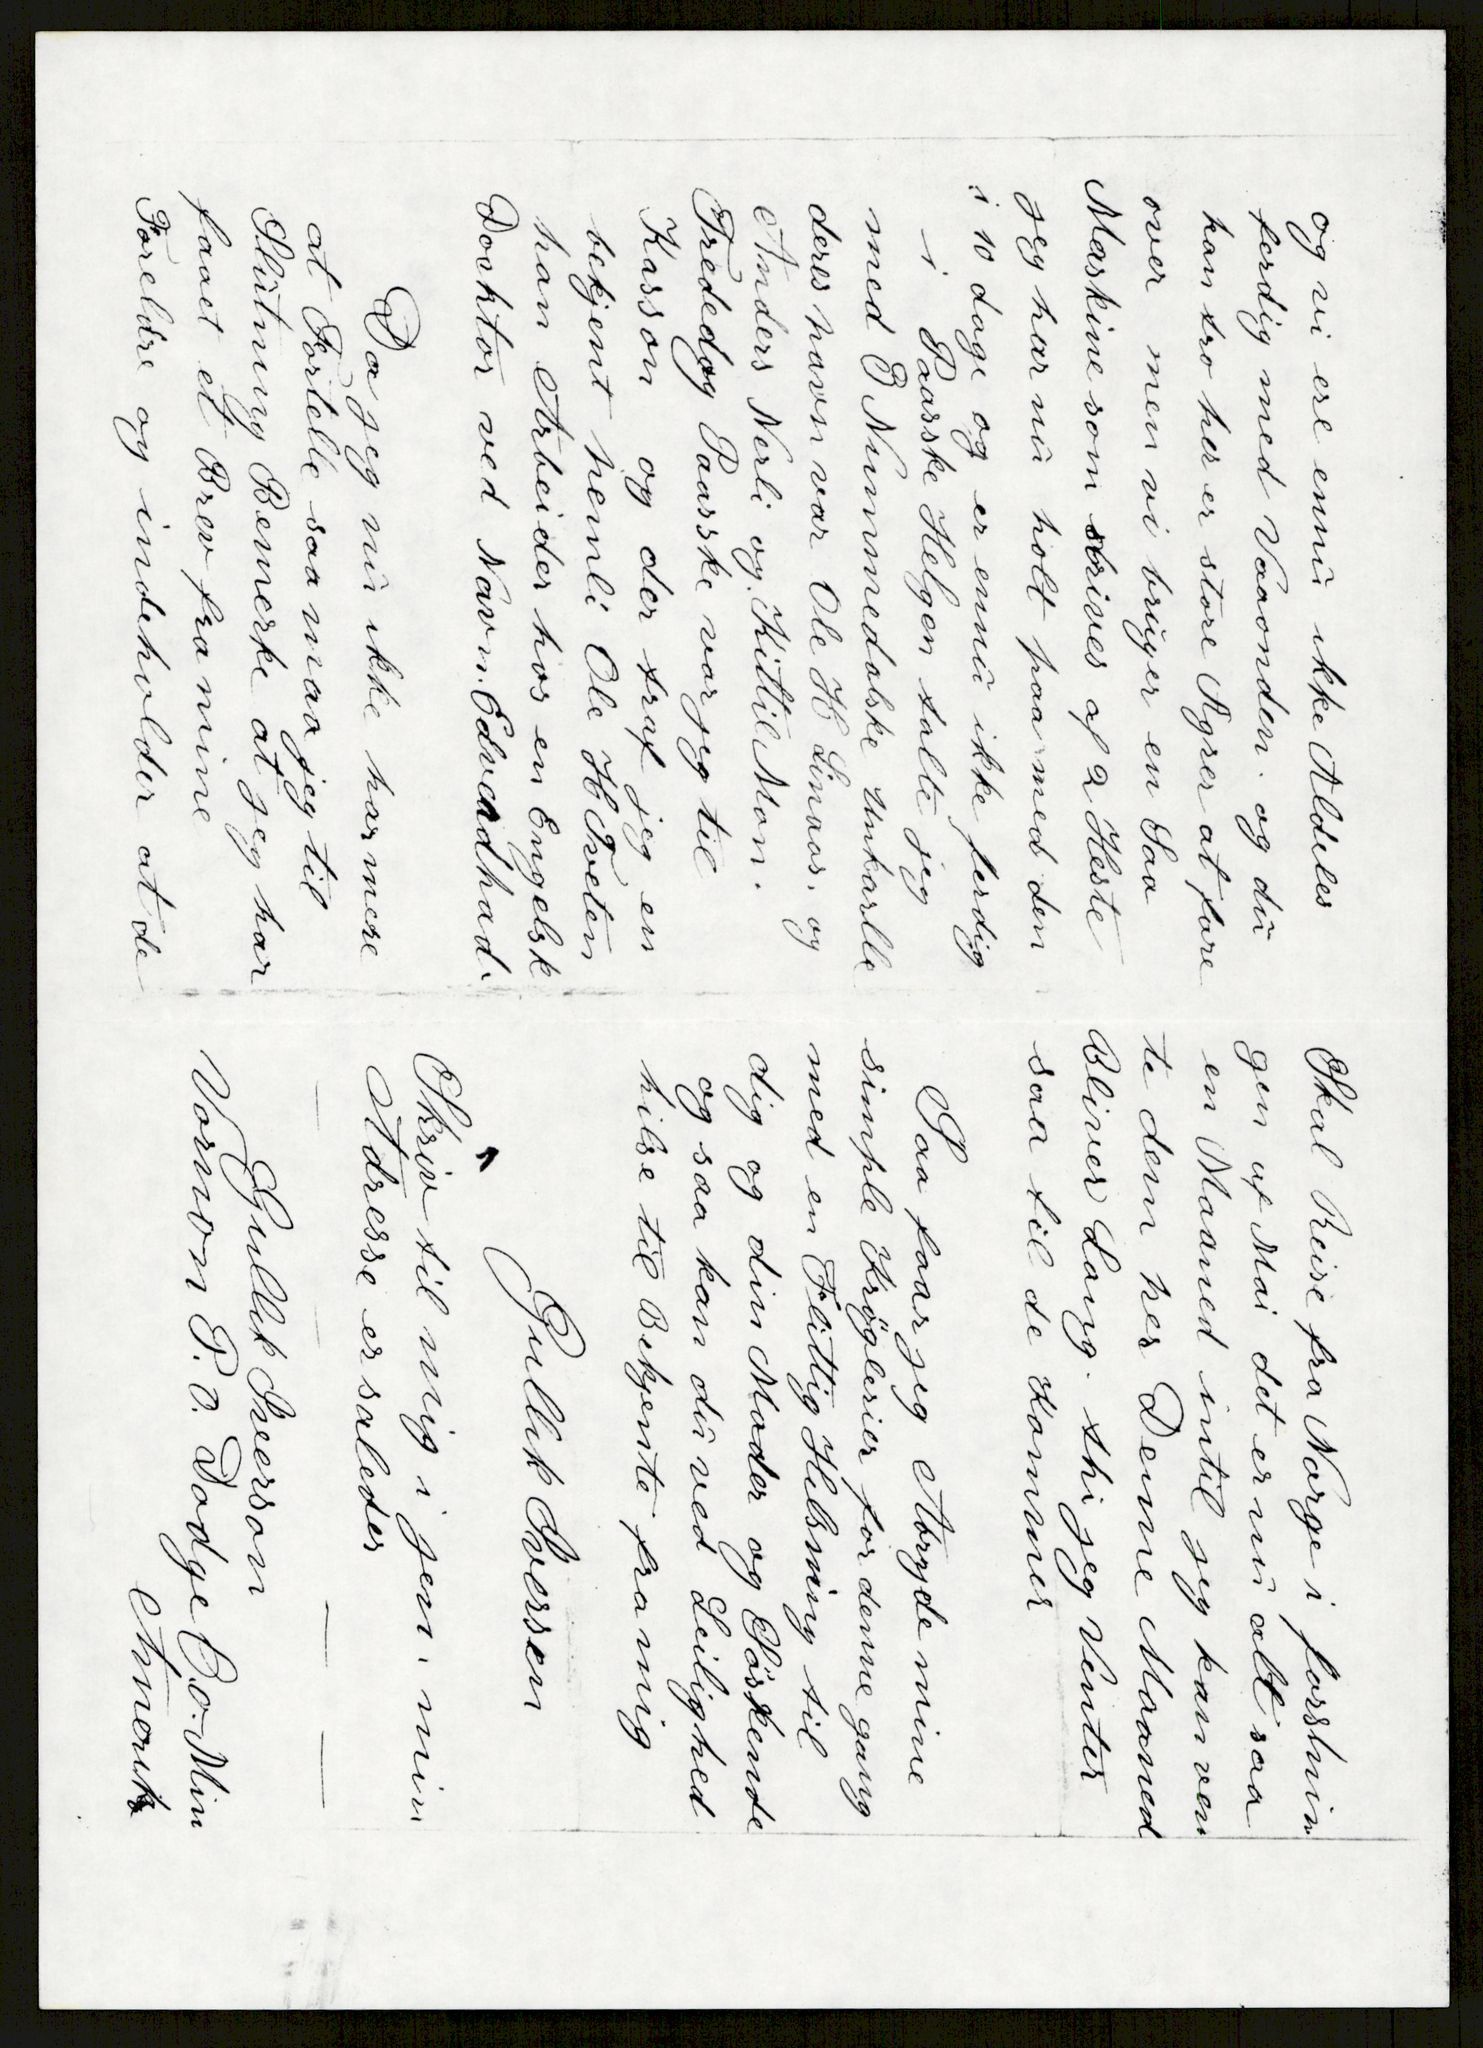 og vi ere ennu ikke Aldeles
ferdig med Vaaonden. og du
kan tro her er store Agrer at fare
over men vi bruger en Saa
Maskine som drives af 2 Heste
jeg har nu holt paa med den
i 10 dage og er ennu ikke ferdig
i Paaske Helgen talte jeg
med 3 Nummedalske unkarlle
deres navn var Ole H Linaas. og
Anders Nerli og Kittil Mon.
Trededag Paaske var jeg til
Kasson og der traf jeg en
bekjent nemli Ole H Tveten
han Arbeider hos en Engelsk
Docktor ved Navn. Edvadhad.
Da jeg nu ikke har mere
at Fortelle saa maa jeg til
Slutning Bemerke at jeg har
faaet et Brev fra mine
Foreldre og indeholder at de
Skal Reise fra Norge i forstnin
gen af Mai det er nu alt saa
en Maaned intil jeg kan ven
te dem her Denne Maaned
Bliver Lang. thi jeg Venter
saa til de Kommer
Saa faar jeg Abryde mine
simple Krøglerier for denne gang
med en Flittig Helsning til
dig og din Moder og Söskende
og saa kan du ved Leilighed
hilse til Bekjente fra mig
Gullik Iverson
Skriv til mig i jem. min
Adresse er saleder
Gullik Iverson
Vornon P.O. Dodge Co. Min
Amerik